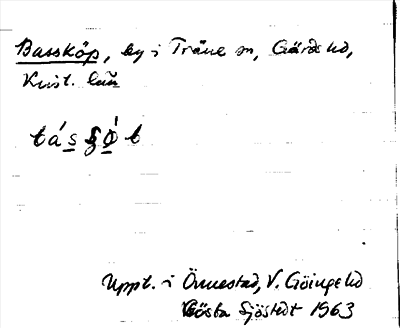 Bassköp, by i Träne sn, Gärds hd,
Krist. län
tás
Uppt. i Önnestad, V. Göinge hd
Gösta Sjöstedt 1963